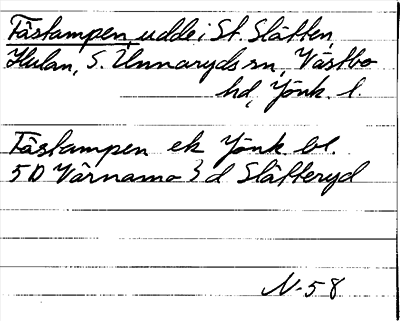 Tåstampen, udde i St. Slätten,
Hulan, S. Unnaryds sn, Västbo
hd, Jönk. l.
Tåstampen ek Jönk. bl.
5D Värnamo 3 d Slätteryd
N-58